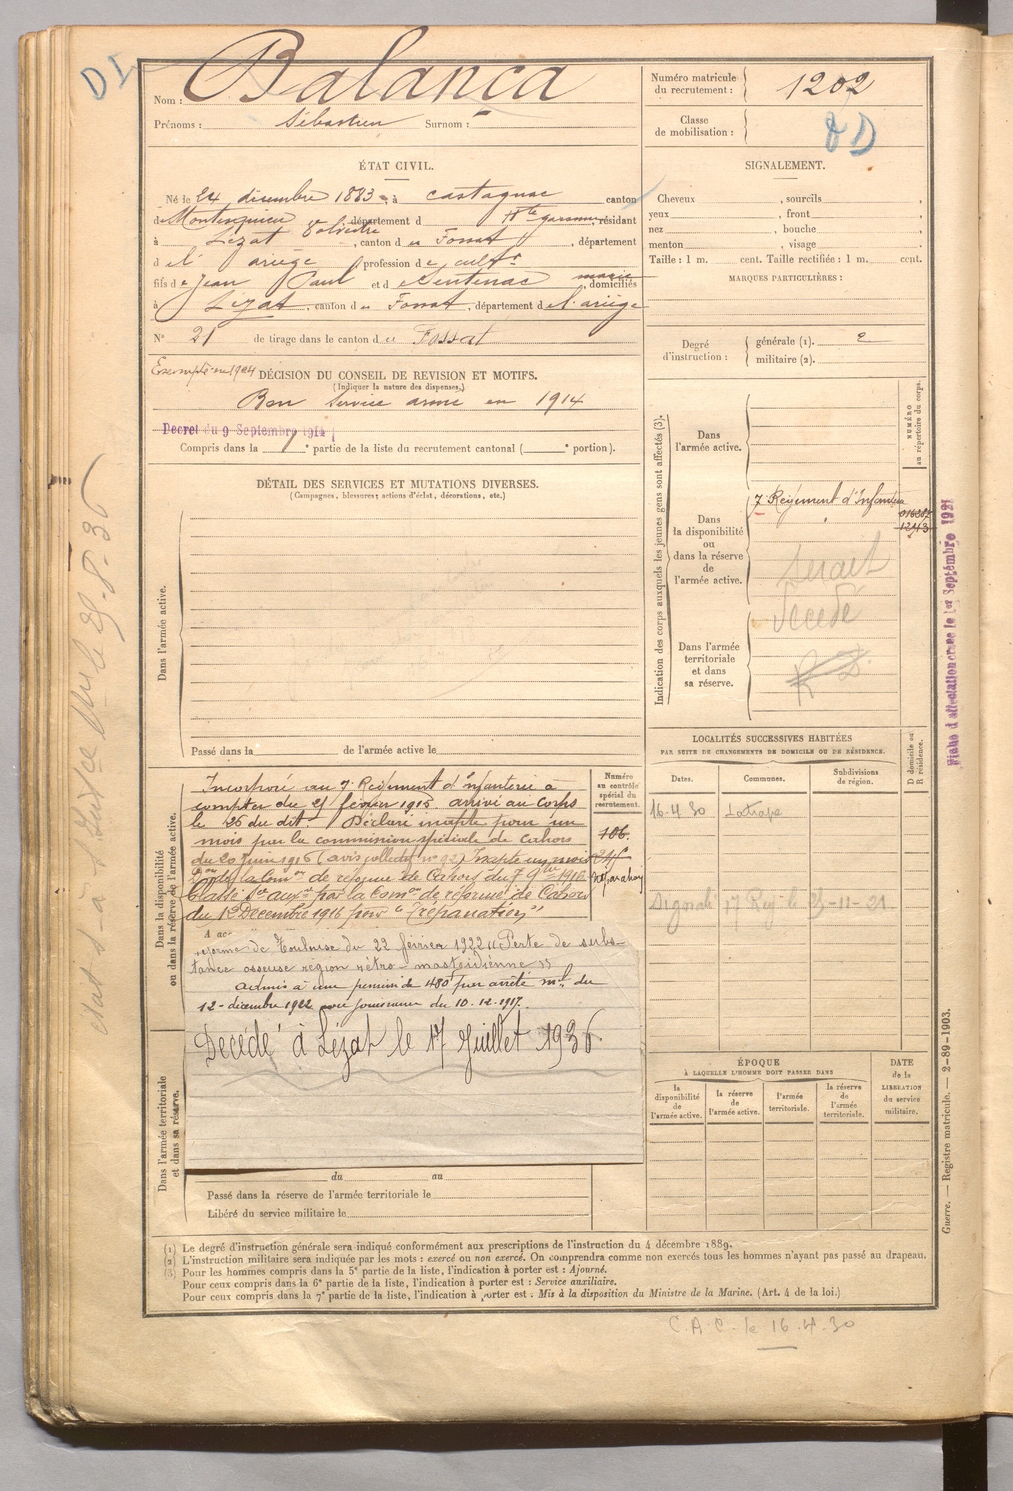 DI
Nom : Balanca
Prénoms : Sébastien Surnom : -
Numéro matricule du recrutement : 1202
Classe de mobilisation :
D
ÉTAT CIVIL.
Né le 24 décembre 1883, à Castagnac canton
de Montesquieu Volvestre, département d Hte garonne, résidant
à Lézat, canton du Fossat, département
d e l' ariège profession de cultr
fils de Jean Paul et de Sentenac marie, domiciliés
à Lézat, canton du Fossat, département de l'ariège
N° 21 de tirage dans le canton du Fossat
SIGNALEMENT.
Cheveux , sourcils ,
yeux , front ,
nez , bouche ,
menton , visage ,
Taille : 1 m. cent. Taille rectifiée : 1 m. cent.
MARQUES PARTICULIÈRES :
Degré d'instruction :
générale (1). 2
militaire (2).
Exempté en 1904
DÉCISION DU CONSEIL DE REVISION ET MOTIFS.
(Indiquer la nature des dispenses.)
Bon Service armé en 1914
Decret du 9 Septembre 1914
Compris dans la 1e partie de la liste du recrutement cantonal ( e portion).
DÉTAIL DES SERVICES ET MUTATIONS DIVERSES.
(Campagnes, blessures, actions d'éclat, décorations, etc.)
Dans l'armée active.
Passé dans la de l'armée active le
Indication des corps auxquels les jeunes gens sont affectés (3).
NUMÉRO au répertoire du corps.
Dans l'armée active.
Dans la disponibilité ou dans la réserve de l'armée active.
7 Régiment d'Infanterie
Serait décédé
Dans l'armée territoriale et dans sa réserve.
Fiche d'affectation créée le 1er Septembre 1921
état s-à-s
le 25-8-36
LOCALITÉS SUCCESSIVES HABITÉES
PAR SUITE DE CHANGEMENTS DE DOMICILE OU DE RÉSIDENCE.
Dates.
Communes.
Subdivisions de région.
D domicile ou R résidence.
16-4-30 Latrape
17 Rég le 25-11-21
Dans la disponibilité ou dans la réserve de l'armée active.
Numéro au contrôle spécial du recrutement.
Incorporé au 7e Régiment d'Infanterie à
compter du 25 février 1915. arrivé au Corps
le 26 du dit. Déclaré inapte pour un
mois par la commission spéciale de Cahors
du 20 Juin 1916 (avis collectif n° 92) Inapte un mois
Don de la Comon de réforme de Cahors du 7 9bre 1916
Classé Sce auxre par la Comon de réforme de Cahors
du 1er Décembre 1916 pour "Trépanation"
106.
réforme de Toulouse du 22 février 1922 "Perte de subs-
tance osseuse région rétro-mastoïdienne"
admis à une pension de 480f par arrêté mel du
12-décembre 1922 avec jouissance du 10.12.1917.
Décédé à Lézat le 17 Juillet 1936
Dans l'armée territoriale et dans sa réserve.
du au
Passé dans la réserve de l'armée territoriale le
Libéré du service militaire le
ÉPOQUE
À LAQUELLE L'HOMME DOIT PASSER DANS
la disponibilité de l'armée active.
la réserve de l'armée active.
l'armée territoriale.
la réserve de l'armée territoriale.
DATE de la LIBÉRATION du service militaire.
Guerre. — Registre matricule. — 2-89-1903.
(1) Le degré d'instruction générale sera indiqué conformément aux prescriptions de l'instruction du 4 décembre 1889.
(2) L'instruction militaire sera indiquée par les mots : exercé ou non exercé. On comprendra comme non exercés tous les hommes n'ayant pas passé au drapeau.
(3) Pour les hommes compris dans la 5e partie de la liste, l'indication à porter est : Ajourné.
Pour ceux compris dans la 6e partie de la liste, l'indication à porter est : Service auxiliaire.
Pour ceux compris dans la 7e partie de la liste, l'indication à porter est : Mis à la disposition du Ministre de la Marine. (Art. 4 de la loi.)
C.A.C. le 16.4.30